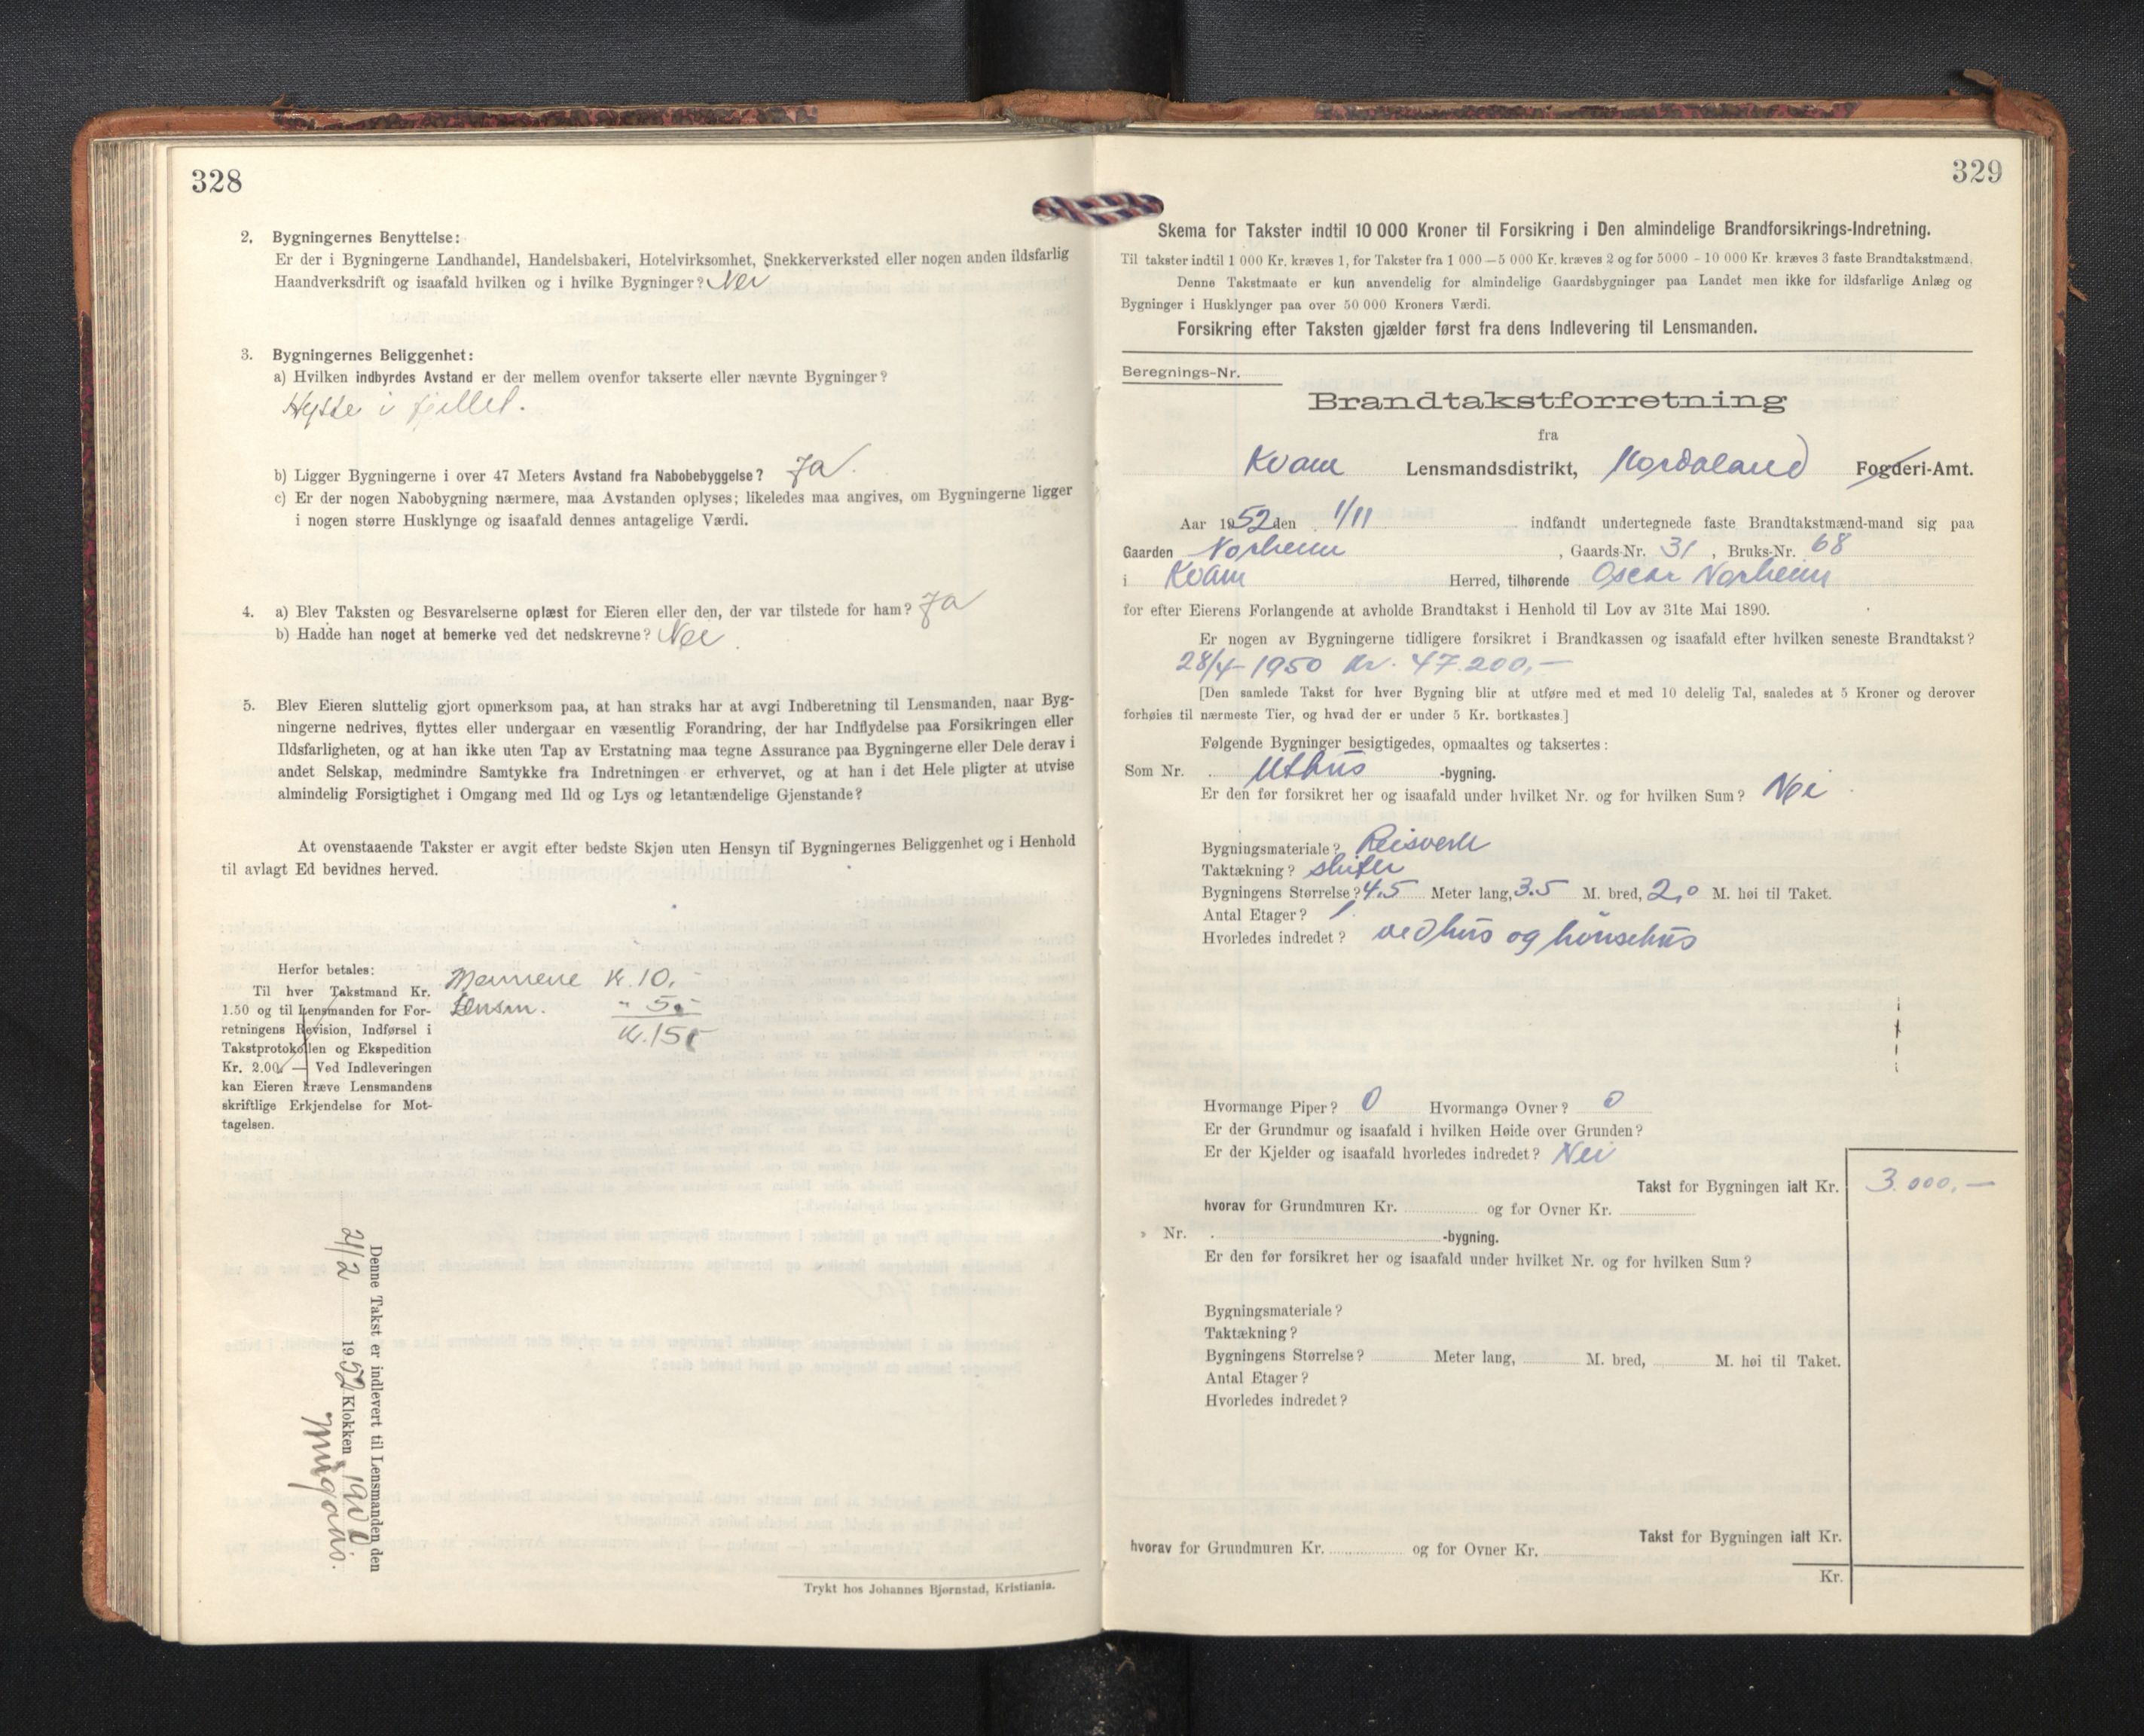 328
2. Bygningernes Benyttelse:
Er der i Bygningerne Landhandel, Handelsbakeri, Hotelvirksomhet, Snekkerverksted eller nogen anden ildsfarlig
Haandverksdrift og isaafald hvilken og i hvilke Bygninger? Nei
3. Bygningernes Beliggenhet:
a) Hvilken indbyrdes Avstand er der mellem ovenfor takserte eller nævnte Bygninger?
Hytte i fjellet.
b) Ligger Bygningerne i over 47 Meters Avstand fra Nabobebyggelse? Ja.
c) Er der nogen Nabobygning nærmere, maa Avstanden oplyses; likeledes maa angives, om Bygningerne ligger
i nogen større Husklynge og isaafald dennes antagelige Værdi.
4. a) Blev Taksten og Besvarelserne oplæst for Eieren eller den, der var tilstede for ham? Ja
b) Hadde han noget at bemerke ved det nedskrevne? Nei.
5. Blev Eieren sluttelig gjort opmerksom paa, at han straks har at avgi Indberetning til Lensmanden, naar Byg-
ningerne nedrives, flyttes eller undergaar en væsentlig Forandring, der har Indflydelse paa Forsikringen eller
Ildsfarligheten, og at han ikke uten Tap av Erstatning maa tegne Assurance paa Bygningerne eller Dele derav i
andet Selskap, medmindre Samtykke fra Indretningen er erhvervet, og at han i det Hele pligter at utvise
almindelig Forsigtighet i Omgang med Ild og Lys og letantændelige Gjenstande?
At ovenstaaende Takster er avgit efter bedste Skjøn uten Hensyn til Bygningernes Beliggenhet og i Henhold
til avlagt Ed bevidnes herved.
Herfor betales:
Til hver Takstmand Kr.
1.50 og til Lensmanden for For-
retningens Revision, Indførsel i
Takstprotokollen og Ekspedition
Kr. 2.00. — Ved Indleveringen
kan Eieren kræve Lensmandens
skriftlige Erkjendelse for Mot-
tagelsen.
Mennene Kr. 10,-
Lensm. " 5,-
Kr. 15,-
Denne Takst er indlevert til Lensmanden den
21/2 1952 Klokken 1900
Trykt hos Johannes Bjørnstad, Kristiania.
329
Skema for Takster indtil 10 000 Kroner til Forsikring i Den almindelige Brandforsikrings-Indretning.
Til takster indtil 1 000 Kr. kræves 1, for Takster fra 1 000 — 5 000 Kr. kræves 2 og for 5000 - 10 000 Kr. kræves 3 faste Brandtakstmænd.
Denne Takstmaate er kun anvendelig for almindelige Gaardsbygninger paa Landet men ikke for ildsfarlige Anlæg og
Bygninger i Husklynger paa over 50 000 Kroners Værdi.
Forsikring efter Taksten gjælder først fra dens Indlevering til Lensmanden.
Beregnings-Nr.
Brandtakstforretning
fra
Kvam Lensmandsdistrikt, Hordaland Fogderi-Amt.
Aar 1952 den 1/11 indfandt undertegnede faste Brandtakstmænd-mand sig paa
Gaarden Norheim, Gaards-Nr. 31, Bruks-Nr. 68
i Kvam Herred, tilhørende Oscar Norheim
for efter Eierens Forlangende at avholde Brandtakst i Henhold til Lov av 31te Mai 1890.
Er nogen av Bygningerne tidligere forsikret i Brandkassen og isaafald efter hvilken seneste Brandtakst?
28/4-1950 Kr. 47.200,-
[Den samlede Takst for hver Bygning blir at utføre med et med 10 delelig Tal, saaledes at 5 Kroner og derover
forhøies til nærmeste Tier, og hvad der er under 5 Kr. bortkastes.]
Følgende Bygninger besigtigedes, opmaaltes og taksertes:
Som Nr. Uthus -bygning.
Er den før forsikret her og isaafald under hvilket Nr. og for hvilken Sum? Nei
Bygningsmateriale? Reisverk
Taktækning? skifer
Bygningens Størrelse? 4.5 Meter lang, 3.5 M. bred, 2,0 M. høi til Taket.
Antal Etager? 1
Hvorledes indredet? vedhus og hönsehus
Hvormange Piper? 0 Hvormange Ovner? 0
Er der Grundmur og isaafald i hvilken Høide over Grunden?
Er der Kjelder og isaafald hvorledes indredet? Nei
Takst for Bygningen ialt Kr. 3.000,-
hvorav for Grundmuren Kr. og for Ovner Kr.
» Nr. -bygning.
Er den før forsikret her og isaafald under hvilket Nr. og for hvilken Sum?
Bygningsmateriale?
Taktækning?
Bygningens Størrelse? Meter lang, M. bred, M. høi til Taket.
Antal Etager?
Hvorledes indredet?
Takst for Bygningen ialt Kr.
hvorav for Grundmuren Kr. og for Ovner Kr.
Kr.